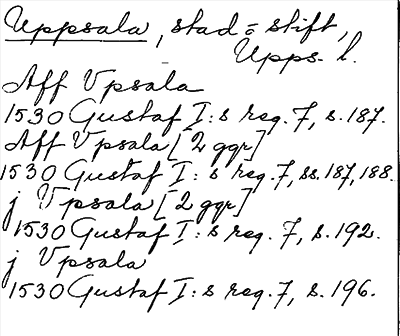 Uppsala, stad o. stift,
Upps. l.
Aff Vpsala
1530 Gustaf I:s reg. 7, s. 187.
Aff Vpsala [2 ggr]
1530 Gustaf I:s reg. 7, ss. 187, 188.
j Vpsala [2 ggr]
1530 Gustaf I:s reg. 7, s. 192.
j Vpsala
1530 Gustaf I:s reg. 7, s. 196.